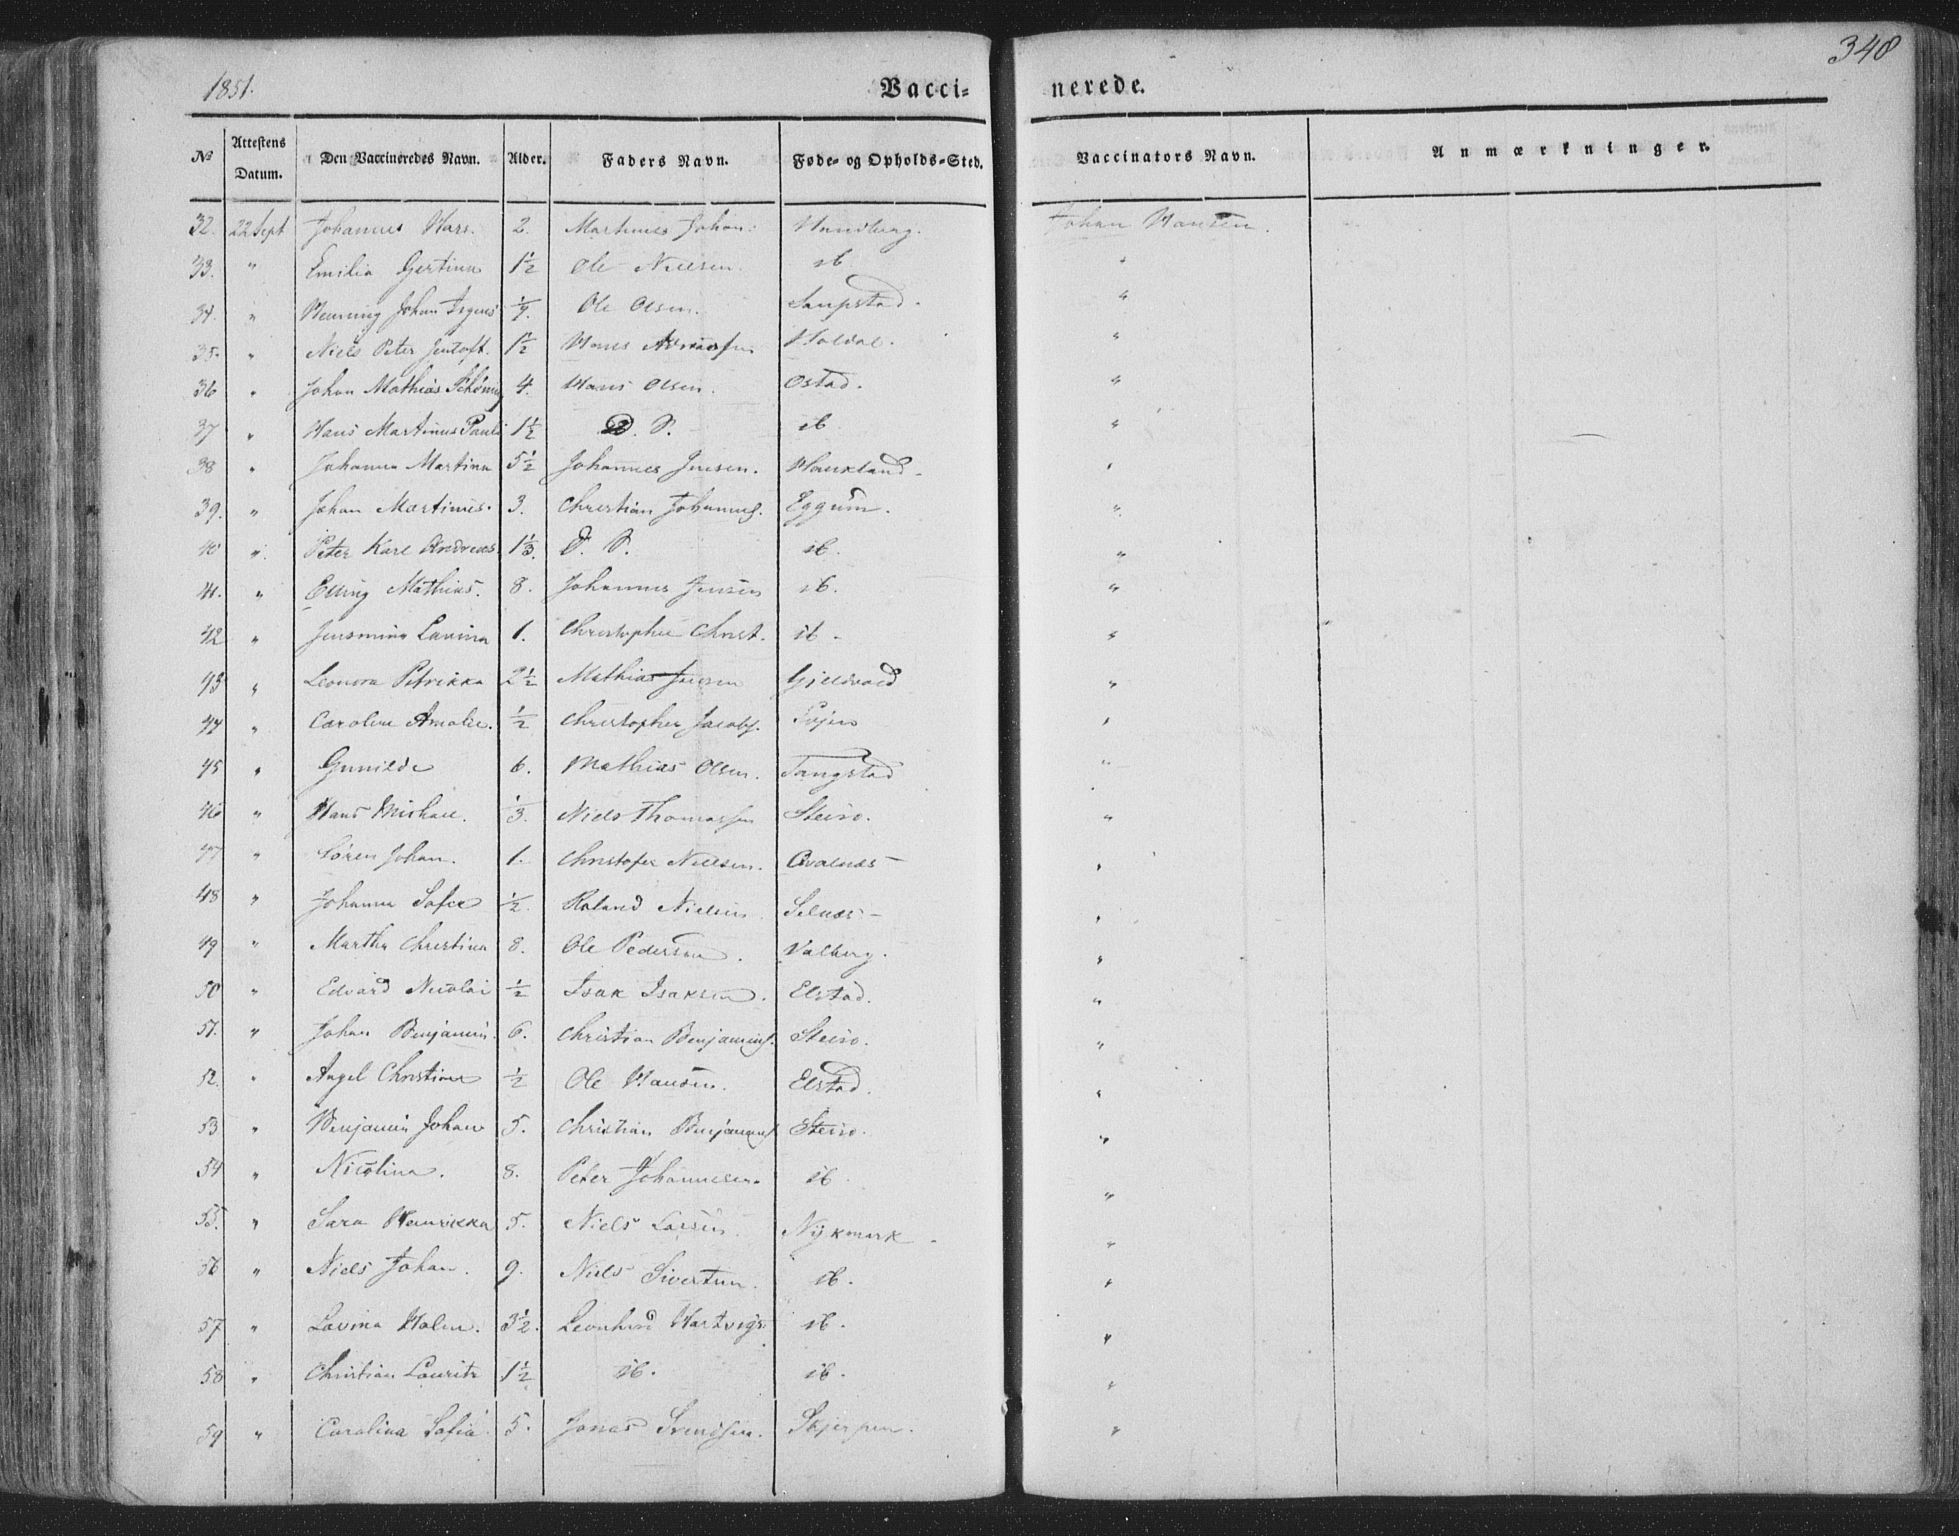 1851. Vacci- nerede. 348
No Attestens Datum. Den Vaccineredes Navn. Alder. Faders Navn. Føde- og Opholds-Sted. Vaccinators Navn. Anmærkninger.
32. 22 Sept Johannes Hars. 2. Martinus Johan: Hundberg. Johan Hansen.
33. " Emilia Gertina 1½ Ole Nielsen. ib "
34. " Henning Johan Ole Olsen. "
35. " Niels Peter Jentoft. 1½ Hans Holdal. "
36 " Johan Mathias 4. Hans Olsen. Ostad. "
37 " Hans Martinus Pauli 1½ D. S. ib "
38 " Johanna Martina 5½ Johannes Jensen. Haukland. "
39. " Johan Martinus. 3. Christian Johannes. Eggum. "
40 " Peter Karl Andreas. 1⅓. D. S. ib. "
41. " Elling Mathias. 8. Johannes Jensen ib. "
42 " Jensmina Lavina 1. Christopher Christ. ib. "
43 " Leonora Petrikka 2½ Mathias Jensen "
44 " Caroline Amalie. ½ Christopher Jacobs. "
45 " Gunilde 6. Mathias Olsen. Tangstad "
46 " Hans Michael. ⅓. Niels Thomassen Steiro. "
47 " Sören Johan. 1. Christofer Nielsen. Qvalnæs "
48 " Johanna Sofie ½. Roland Nielsen. Selnæs "
49 " Martha Christina 8. Ole Pedersen. Valberg. "
50 " Edvard Nicolai ½ Isak Isaksen. Elstad. "
51. " Johan Benjamin. 6. Christian Benjamins. Steiro. "
52. " Angel Christine ½ Ole Hansen. Elstad. "
53 " Benjamin Johan 5. Christian Benjamins Steiro. "
54 " Nicolina. 8. Peter Johannesen. ib. "
55. " Sara Henrikka 5. Niels Larsen. Nykmark "
56 " Niels Johan. 9. Niels Sivertsen. ib. "
57 " Lavina 3½. Leonhard Hartvigs. ib. "
58 " Christian Lauritz 1½ ib. ib. "
59 " Carolina Sofia. 5. Jonas Svendsen. Skjerpen. "